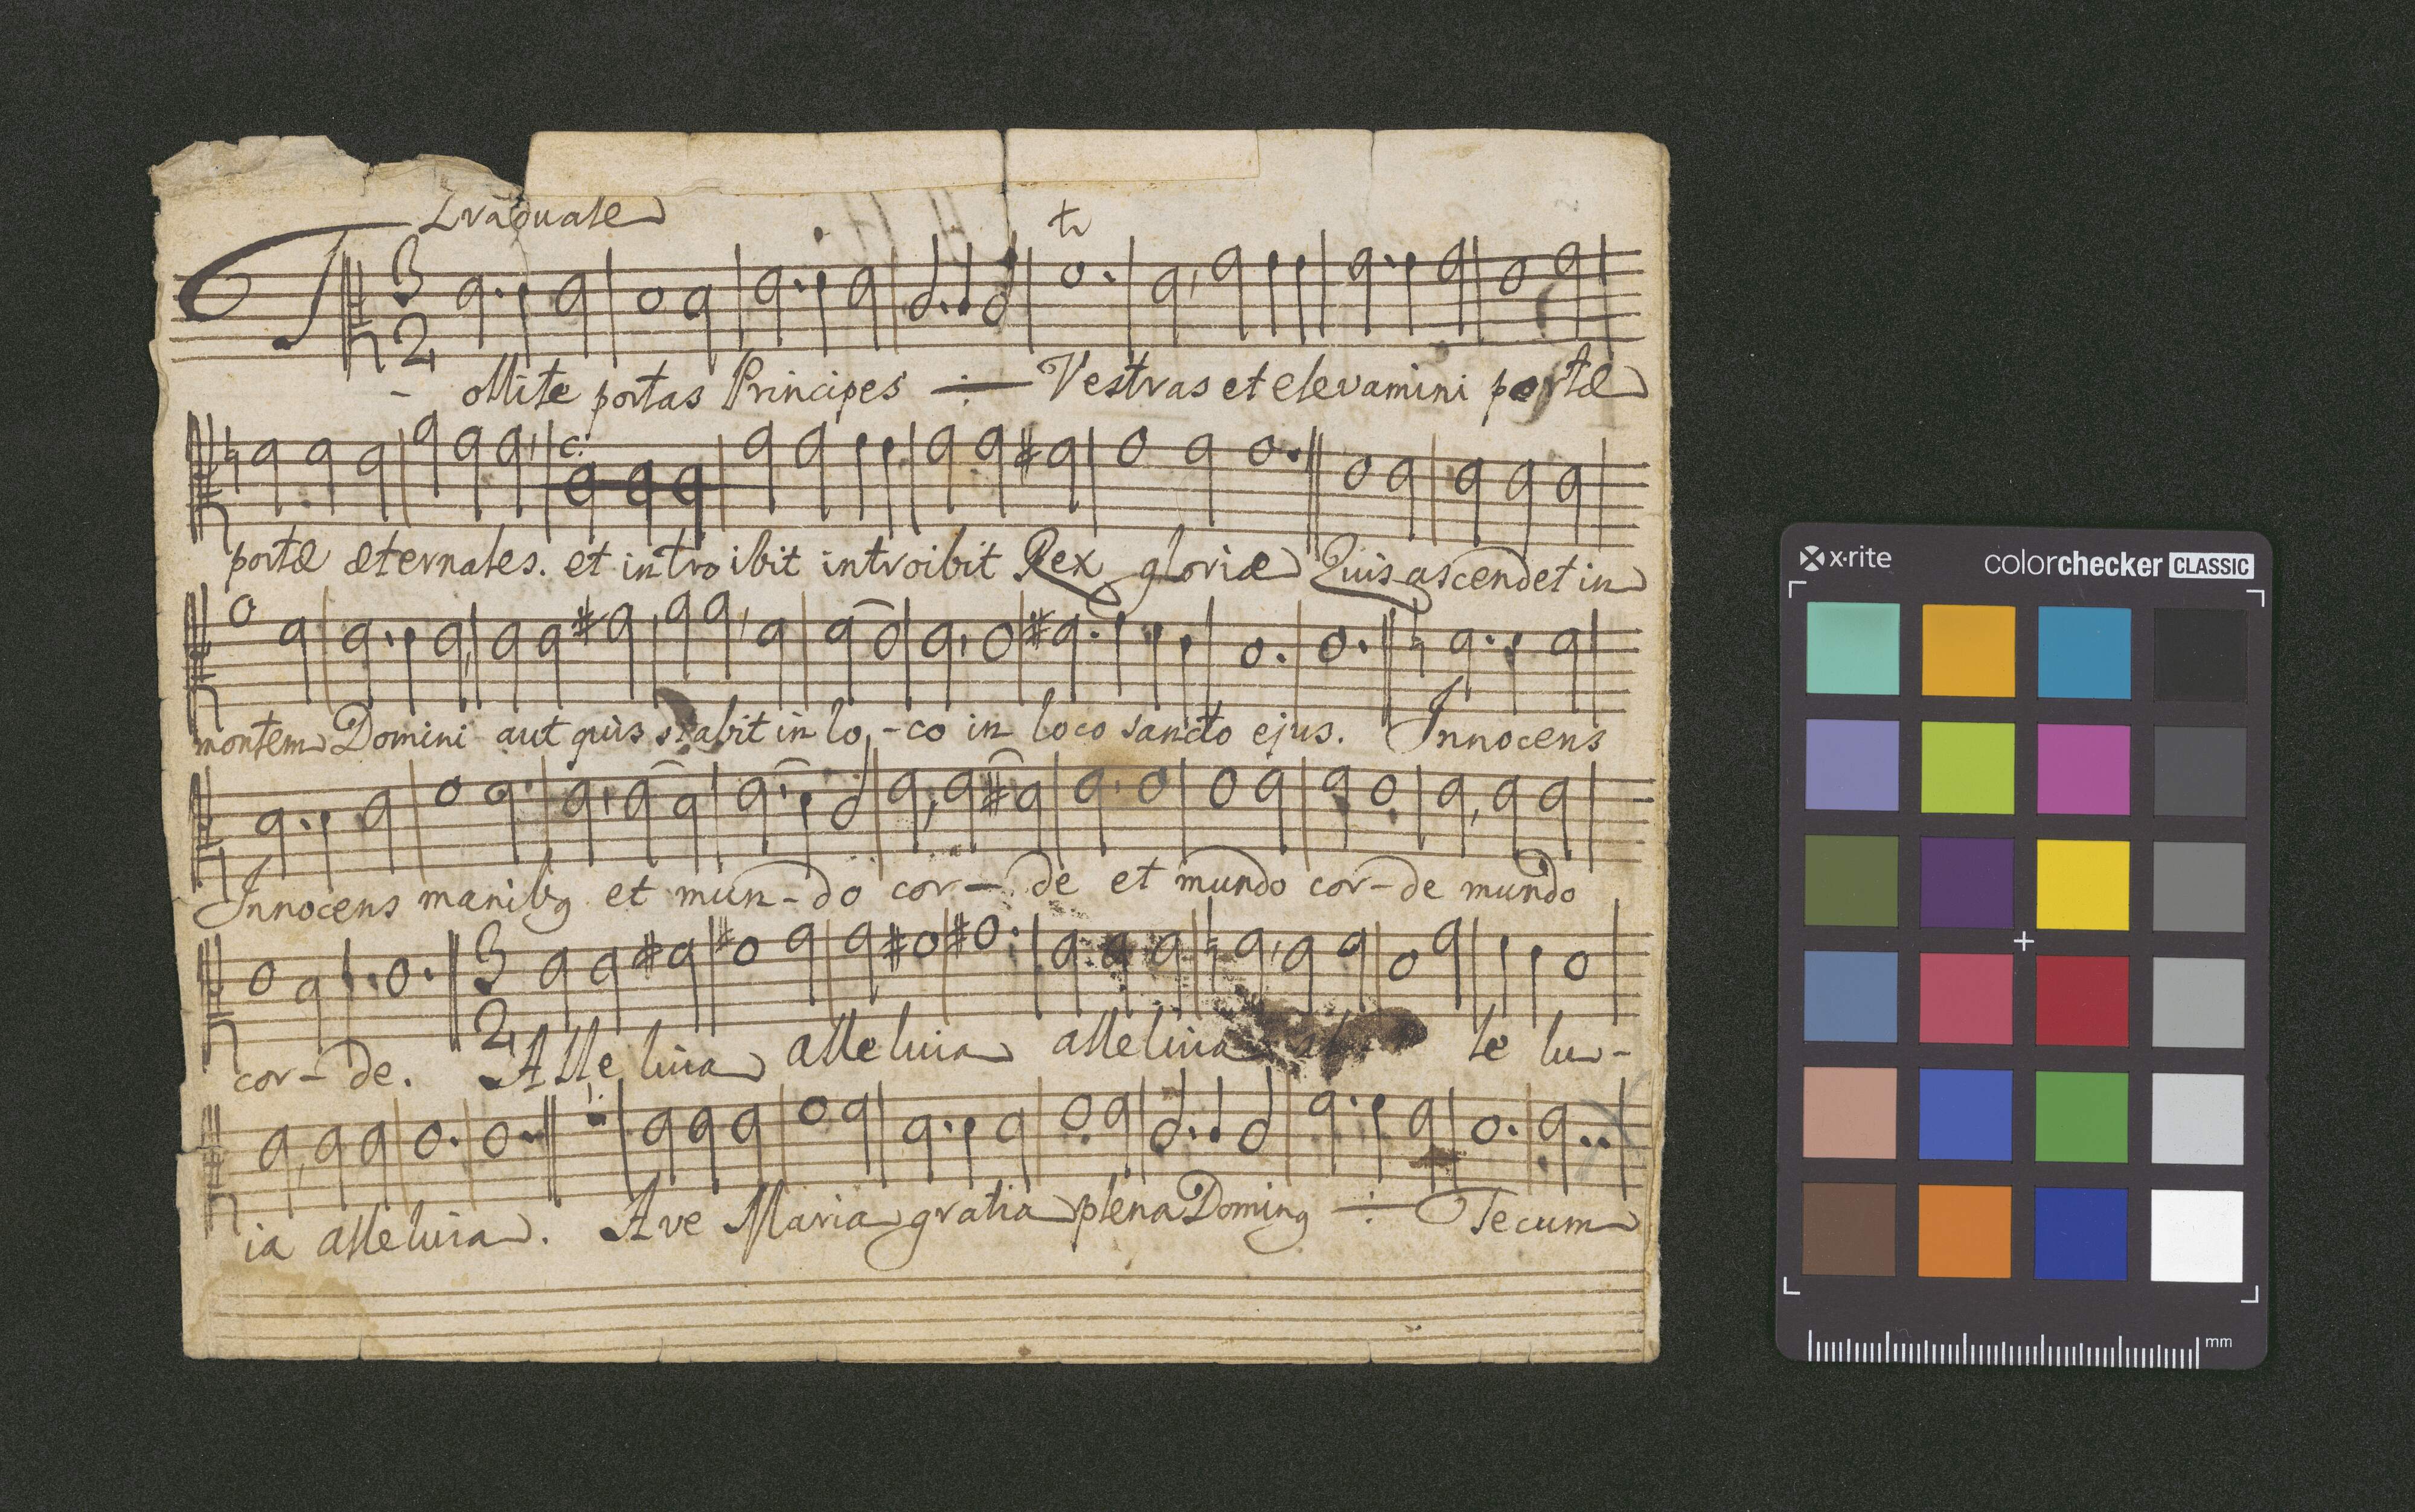 Graduale
tr
3
2
T - ollite portas Principes ÷ Vestras et elevamini portæ
portæ æternales. et introibit introibit Rex gloriæ Quis ascendet in
montem Domini aut quis stabit in lo - co in loco sancto ejus. Innocens
Innocens manibq et mun - do cor - de et mundo cor - de mundo
3
2
cor - de. Alleluia alleluia alleluia al le lu -
ia alleluia. Ave Maria gratia plena Dominq ÷ Tecum
x-rite
colorchecker CLASSIC
mm